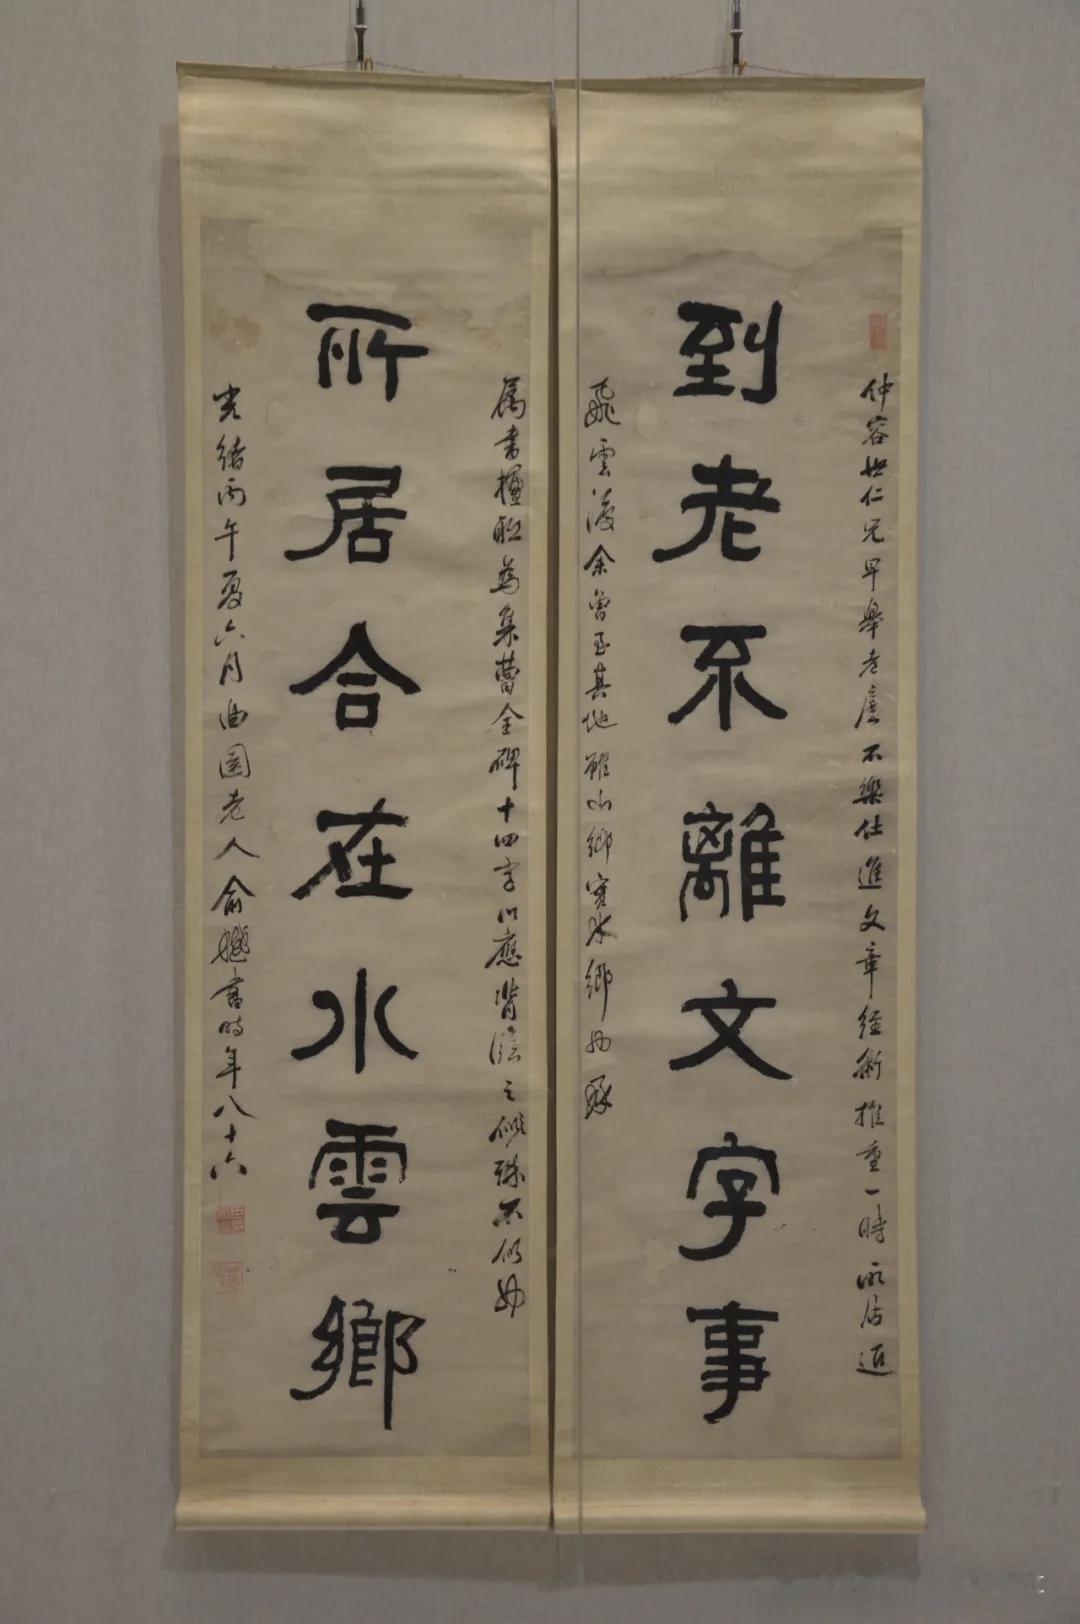 仲容世仁兄早舉孝廉不樂仕進文章經術推重一時所居近
到老不離文字事
飛雲渡余曾至其地雖山鄉實水鄉也承
屬書楹聯為集曹全碑十四字以應背臨之似殊不似也
所居合在水雲鄉
光緒丙午夏六月曲園老人俞樾書時年八十六